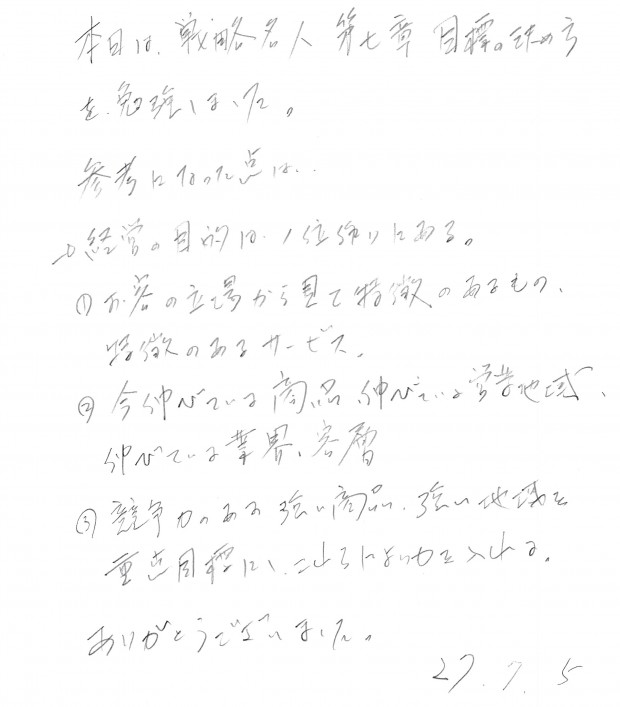 本日は、戦略名人 第七章 目標の決め方
を勉強しました。
参考になった点は..
→経営の目的は、1位作りにある。
① お客の立場から見て特徴のあるもの、
特徴のあるサービス。
② 今伸びている商品、伸びている営業地域、
伸びている業界、客層
③ 競争力のある強い商品、強い地域を
重点目標にし、これらにより力を入れる。
ありがとうございました。
27.7.5